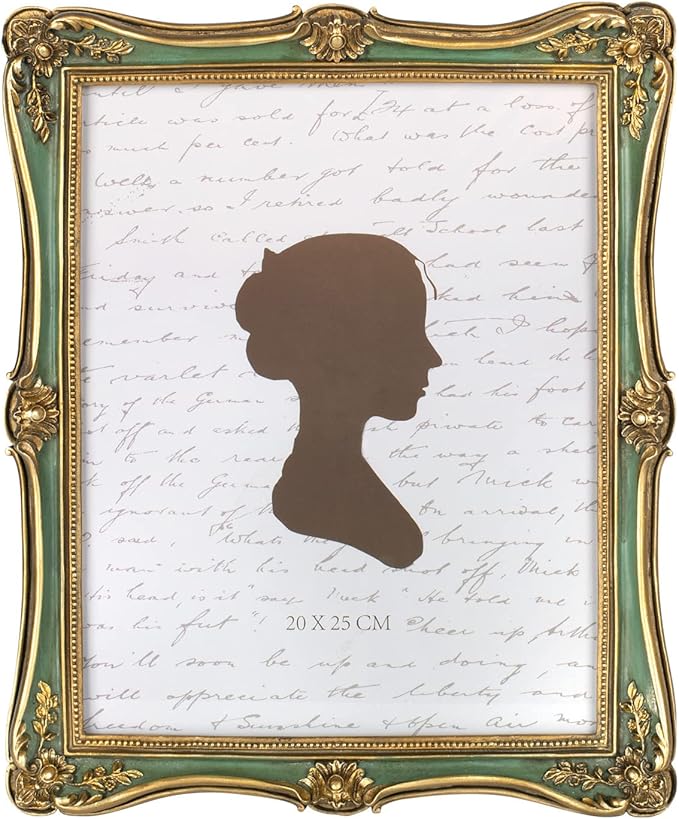 until I gave them
article was sold for £24 at a loss of
so much per cent. What was the cost pr
Well, a number got told for the
answer. so I retired badly wounde
Smith called School last
Friday and had seen
and surviv ked him
remember m which I hop
varlet heard the
ory of the German had his foot
t off and asked private to car
in to the rear the way a shel
k off the Germa but Mick w
ignorant of th On arrival, th
said, "Whats the bringing in
man" with his head shot off, Mick
His head, is it" say Mick" "He told me i
was his feet"! Cheer up Arth
20 X 25 CM
You'll soon be up and doing, an
will appreciate the liberty and
freedom & Sunshine & open air mor